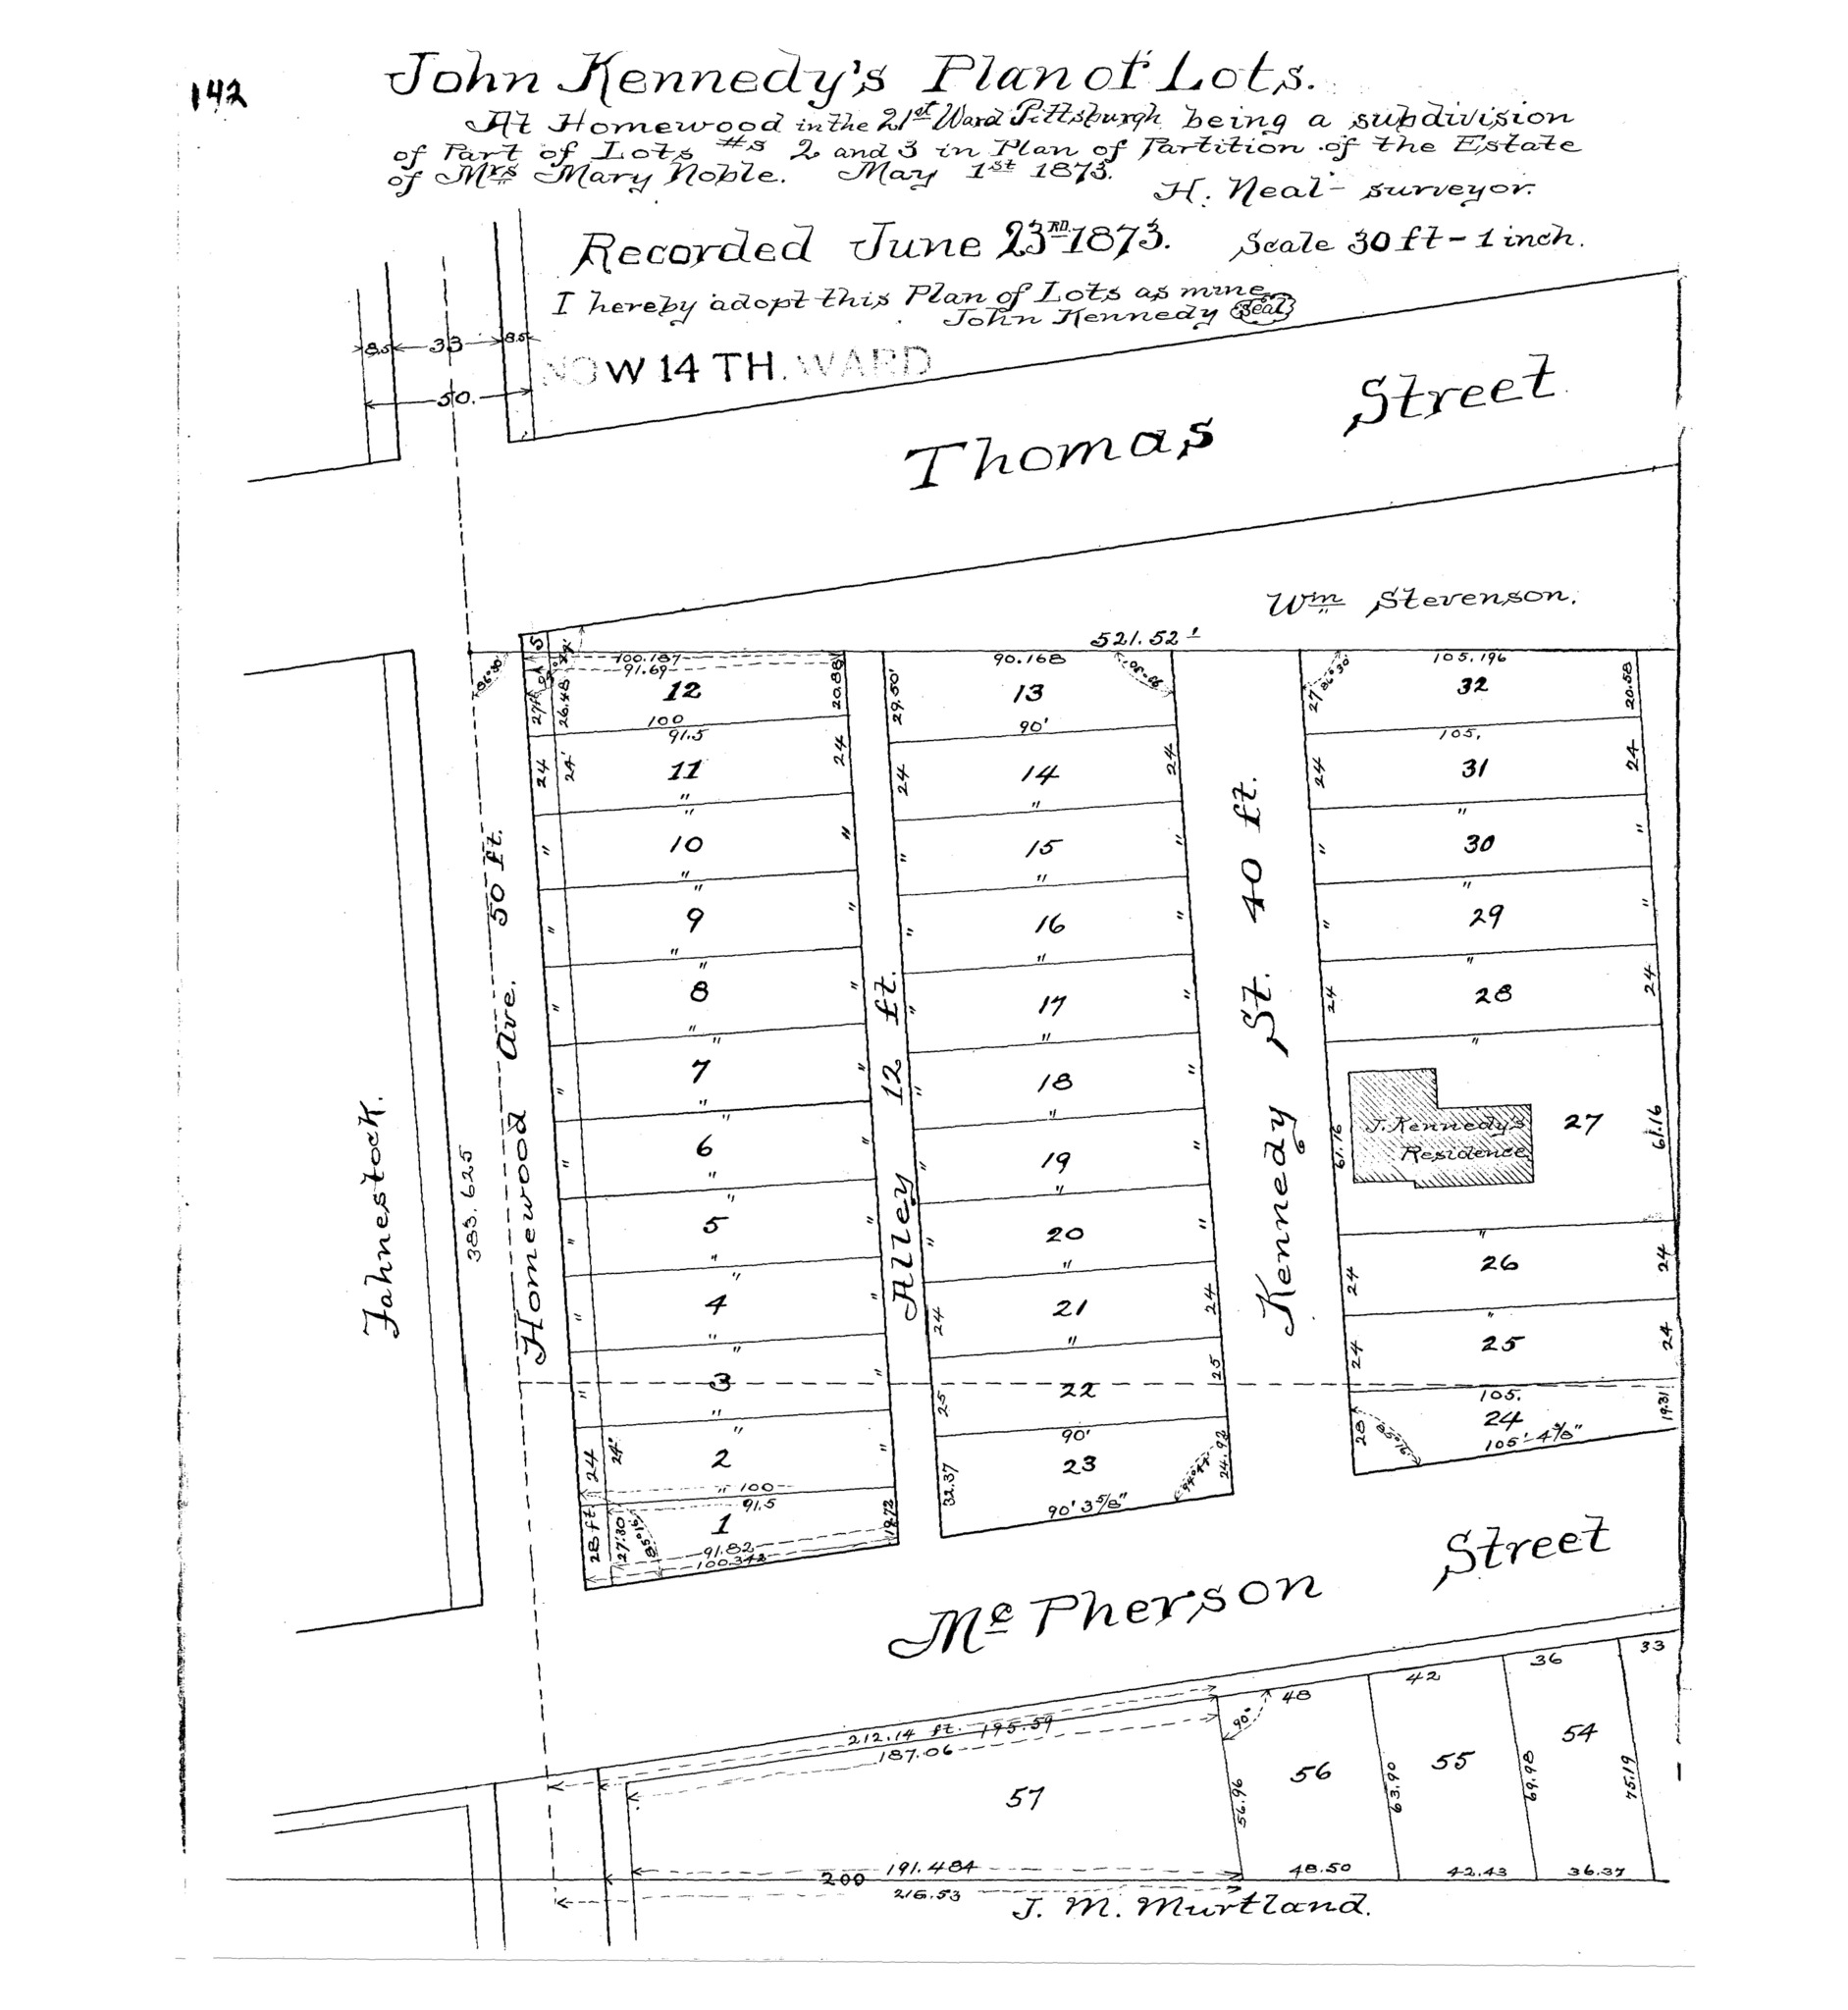 142
John Kennedy's Plan of Lots.
At Homewood in the 21st Ward Pittsburgh being a subdivision
of Part of Lots #s 2 and 3 in Plan of Partition of the Estate
of Mrs Mary Noble. May 1st 1873.
H. Neal - surveyor.
Recorded June 23RD 1873. Scale 30 ft - 1 inch.
I hereby adopt this Plan of Lots as mine
John Kennedy Seal
8.5 33 8.5
NOW 14 TH. WARD
50.
Thomas Street
Wm Stevenson.
521.52'
5
86°30'
100.187
91.69
12
27ft
26.48
20.88
100
91.5
90.168
13
29.50'
90'
105.196
32
27
86°30'
20.58
105.
24
24'
11
24
24
14
24
24
31
24
"
"
10
"
"
15
"
"
30
"
"
9
"
"
16
"
"
29
"
"
8
"
"
17
"
24
28
24
"
7
"
"
18
"
J. Kennedy's
Residence
27
61.16
61.16
"
6
"
"
19
"
"
5
"
"
20
"
24
26
24
"
4
"
24
21
24
24
25
24
"
3
"
25
22
25
105.
24
28
85°16'
19.31
105'-4 3/8"
24
24'
2
"
" 100
91.5
90'
23
32.37
24.92
90' 3 5/8"
28 ft
27.30
85°16'
1
19.72
91.82
100.342
Fahnestock.
383.625
Homewood Ave. 50 ft.
Alley 12 ft.
Kennedy St. 40 ft.
Mc Pherson Street
212.14 ft. 195.59
187.06
90°
48
42
36
33
57
56
55
54
56.96
63.90
69.98
75.19
191.484
200
216.53
48.50
42.43
36.37
J. M. Murtland.